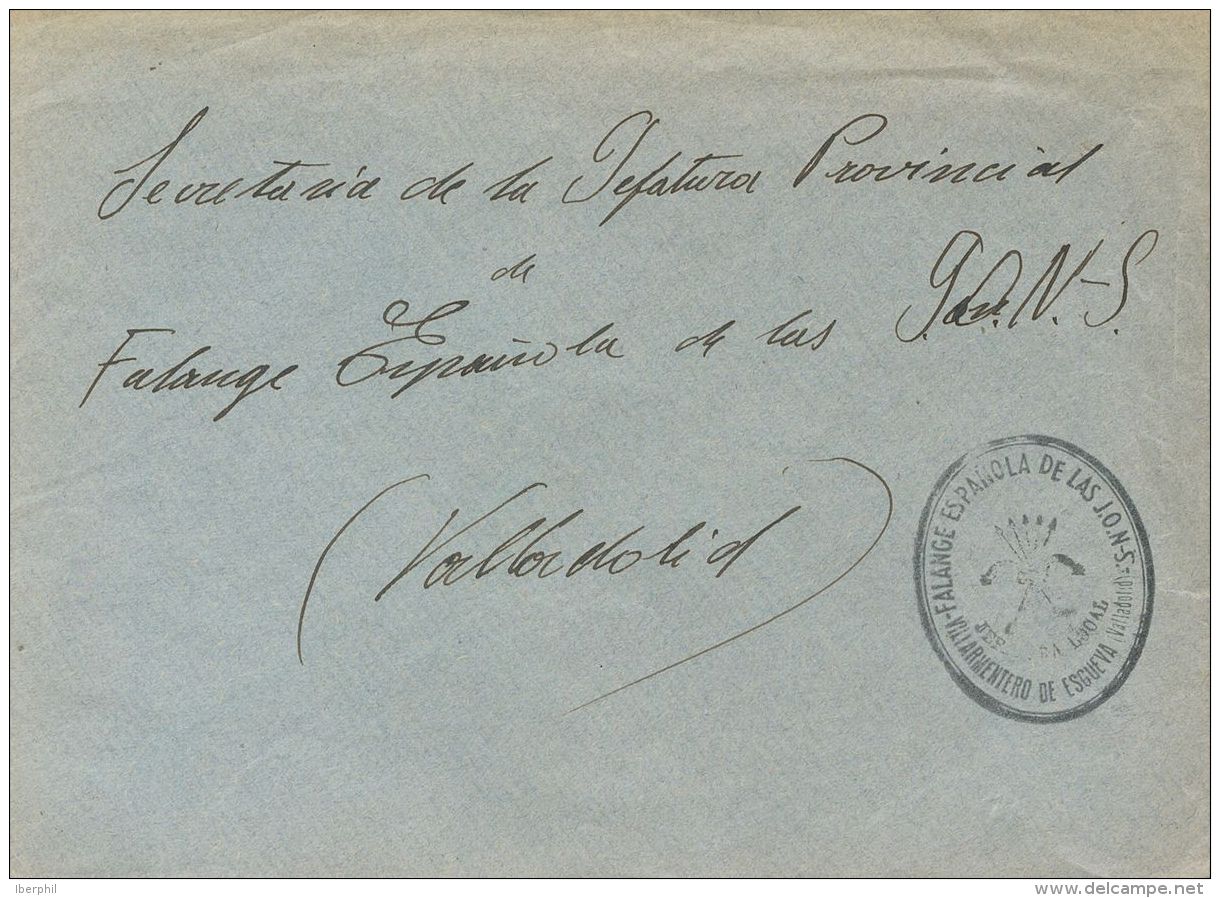 Secretaria de la Jefatura Provincial
de
Falange Española de las J.O.N.-S.
(Valladolid)
FALANGE ESPAÑOLA DE LAS J.O.N-S.
LOCAL
VILLARMENTERO DE ESGUEVA (Valladolid)
Iberphil
www.delcampe.net